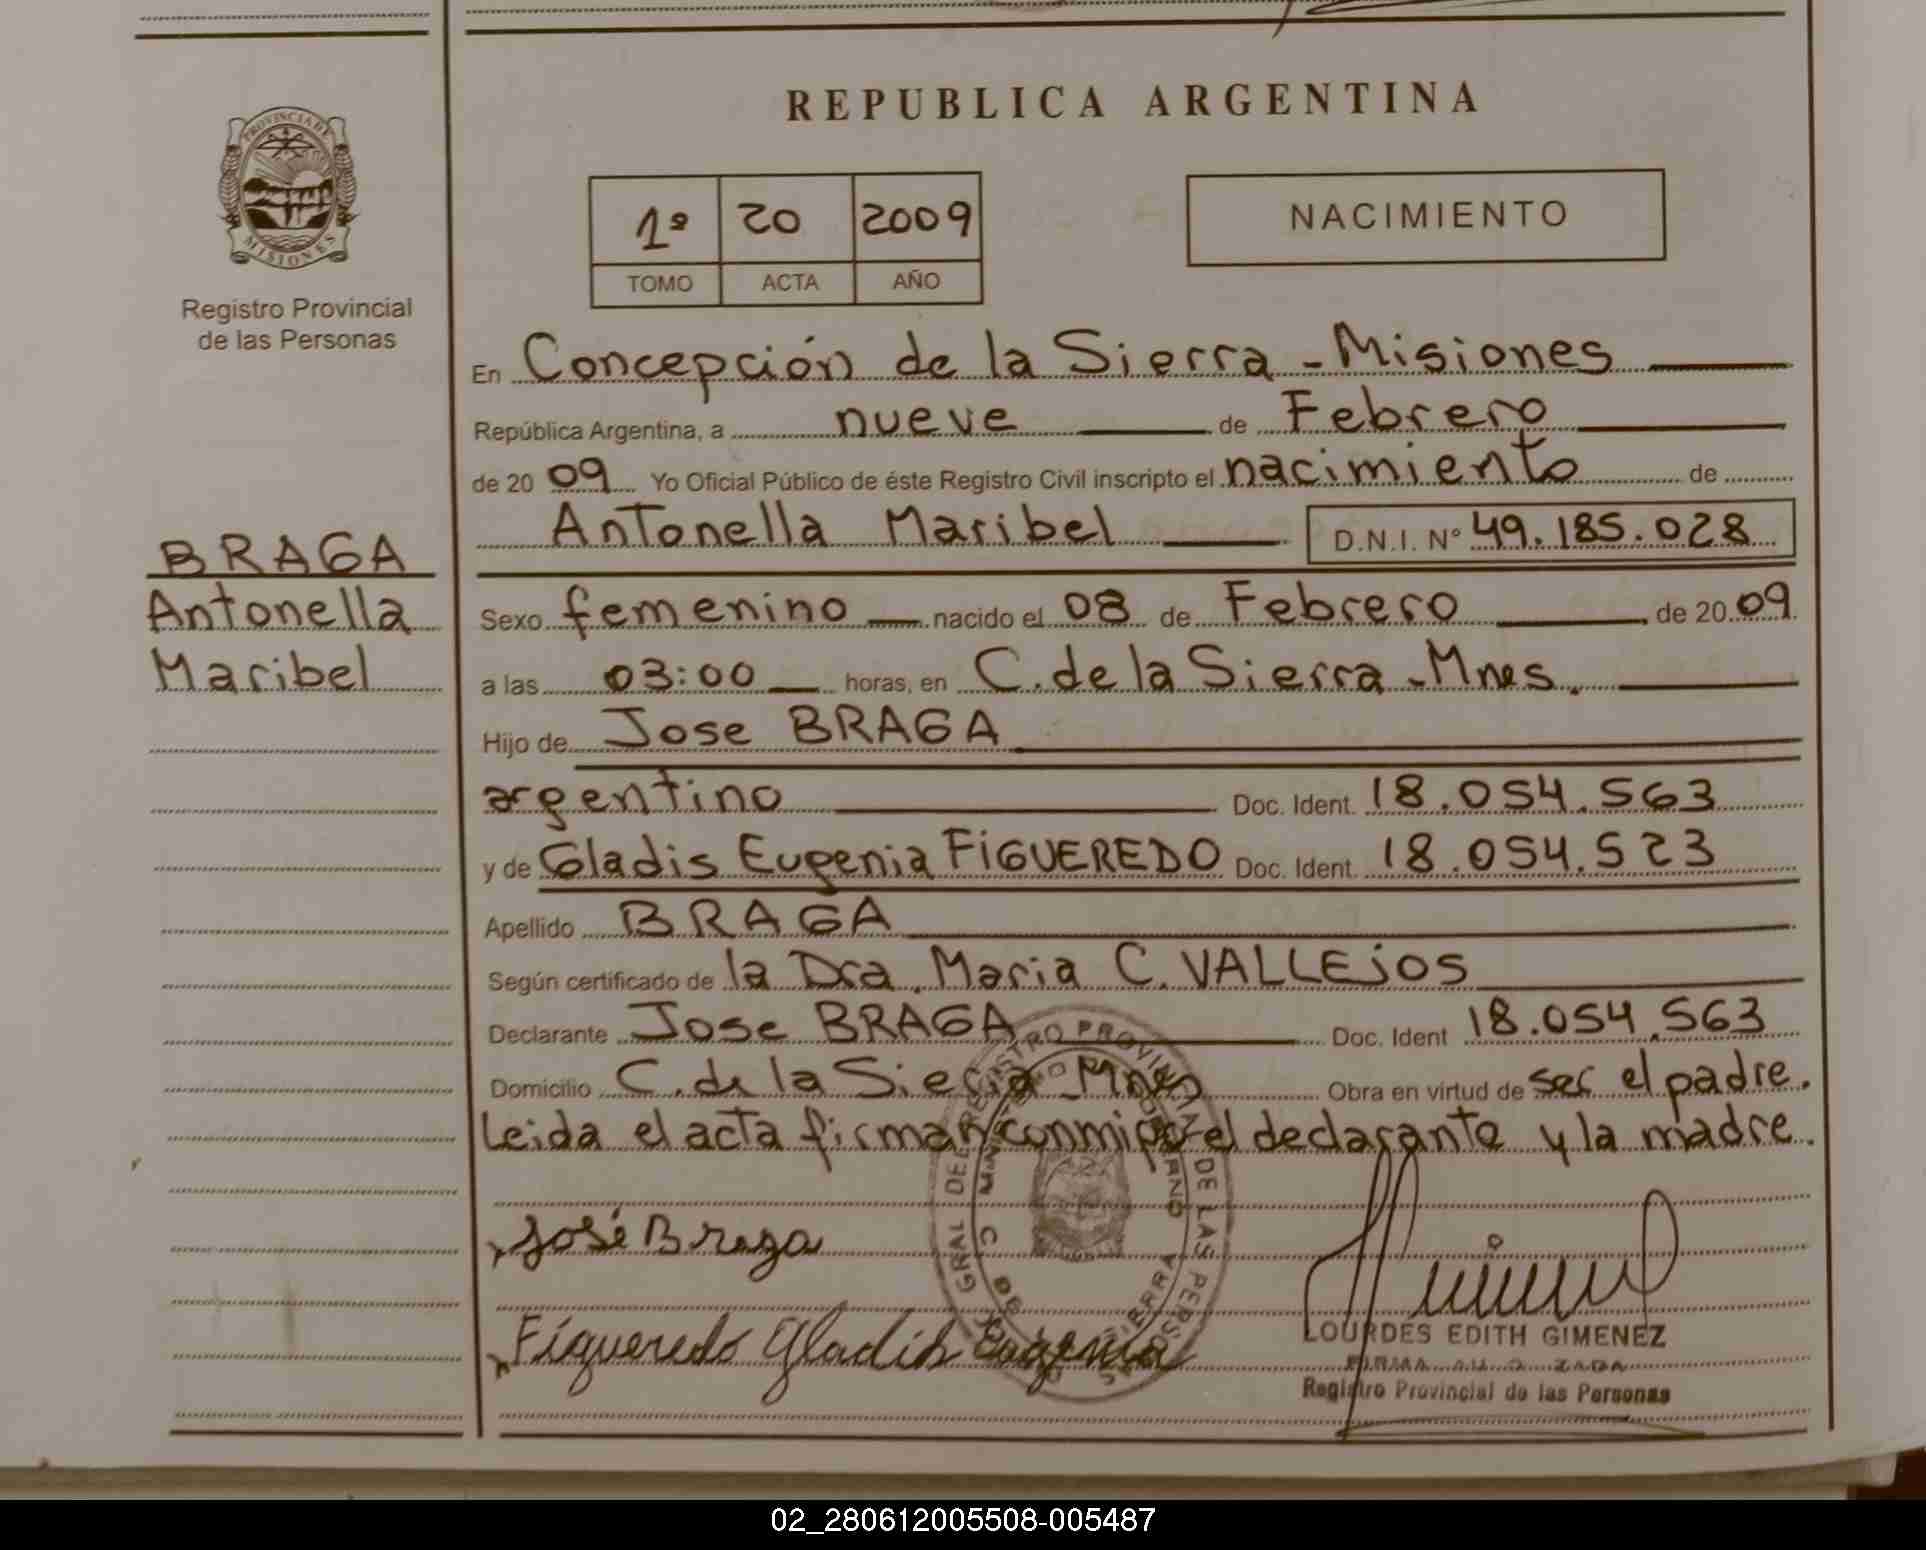 REPUBLICA ARGENTINA
PROVINCIA DE
MISIONES
Registro Provincial
de las Personas
1º 20 2009
TOMO ACTA AÑO
NACIMIENTO
BRAGA
Antonella
Maribel
En Concepción de la Sierra - Misiones
República Argentina, a nueve de Febrero
de 20 09 Yo Oficial Público de éste Registro Civil inscripto el nacimiento de
Antonella Maribel D.N.I. Nº 49.185.028
Sexo femenino nacido el 08 de Febrero de 20 09
a las 03:00 horas, en C. de la Sierra - Mnes.
Hijo de Jose BRAGA
argentino Doc. Ident. 18.054.563
y de Gladis Eugenia FiGUEREDO Doc. Ident. 18.054.523
Apellido BRAGA
Según certificado de la Dra. Maria C. VALLEjOS
Declarante Jose BRAGA Doc. Ident 18.054.563
Domicilio C. de la Sierra - Mnes Obra en virtud de ser el padre.
Leida el acta firman conmigo el declarante y la madre.
José Braga
Figueredo Gladis Eugenia
GRAL DEL REGISTRO PROVINCIAL DE LAS PERSONAS
LOURDES EDITH GIMENEZ
Registro Provincial de las Personas
02_280612005508-005487